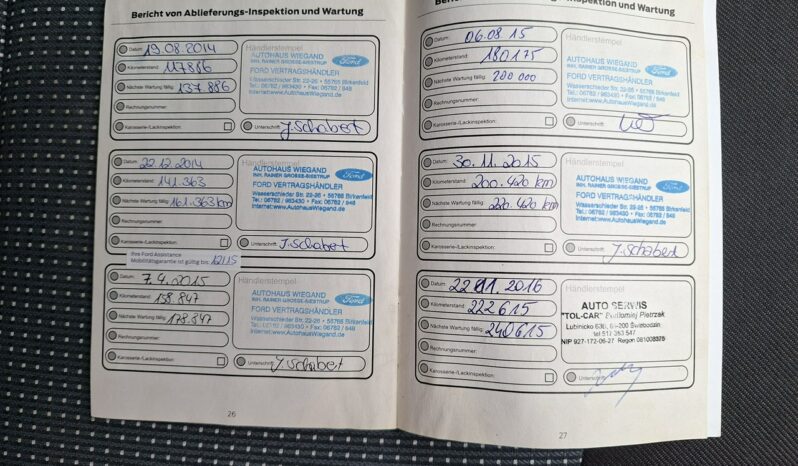 Bericht von Ablieferungs-Inspektion und Wartung
Datum: 19.08.2014
Kilometerstand: 117886
Nächste Wartung fällig: 137.886
Rechnungsnummer:
Karosserie-/Lackinspektion:
Händlerstempel
AUTOHAUS WIEGAND
INH. RAINER GROSSE-SIESTRUP
FORD VERTRAGSHÄNDLER
Wasserschieder Str. 22-26 • 55765 Birkenfeld
Tel.: 06782 / 983430 • Fax: 06782 / 848
Internet:www.AutohausWiegand.de
Ford
Unterschrift: J. Schabert
Datum: 22.12.2014
Kilometerstand: 141.363
Nächste Wartung fällig: 161.363 km
Rechnungsnummer:
Karosserie-/Lackinspektion:
AUTOHAUS WIEGAND
INH. RAINER GROSSE-SIESTRUP
FORD VERTRAGSHÄNDLER
Wasserschieder Str. 22-26 • 55765 Birkenfeld
Tel.: 06782 / 983430 • Fax: 06782 / 848
Internet:www.AutohausWiegand.de
Ford
Unterschrift: J. Schabert
Ihre Ford Assistance
Mobilitätsgarantie ist gültig bis: 12/15
Datum: 7.4.2015
Kilometerstand: 158.847
Nächste Wartung fällig: 178.847
Rechnungsnummer:
Karosserie-/Lackinspektion:
Händlerstempel
AUTOHAUS WIEGAND
INH. RAINER GROSSE-SIESTRUP
FORD VERTRAGSHÄNDLER
Wasserschieder Str. 22-26 • 55765 Birkenfeld
Tel.: 06782 / 983430 • Fax: 06782 / 848
Internet:www.AutohausWiegand.de
Ford
Unterschrift: J. Schabert
26
Inspektion und Wartung
Datum: 06.08.15
Kilometerstand: 180175
Nächste Wartung fällig: 200 000
Rechnungsnummer:
Karosserie-/Lackinspektion:
Händlerstempel
AUTOHAUS WIEGAND
INH. RAINER GROSSE-SIESTRUP
FORD VERTRAGSHÄNDLER
Wasserschieder Str. 22-26 • 55765 Birkenfeld
Tel.: 06782 / 983430 • Fax: 06782 / 848
Internet:www.AutohausWiegand.de
Ford
Unterschrift:
Datum: 30.11.2015
Kilometerstand: 200.420 km
Nächste Wartung fällig: 220.420 km
Rechnungsnummer:
Karosserie-/Lackinspektion:
Händlerstempel
AUTOHAUS WIEGAND
INH. RAINER GROSSE-SIESTRUP
FORD VERTRAGSHÄNDLER
Wasserschieder Str. 22-26 • 55765 Birkenfeld
Tel.: 06782 / 983430 • Fax: 06782 / 848
Internet:www.AutohausWiegand.de
Ford
Unterschrift: J. Schabert
Datum: 22.11.2016
Kilometerstand: 222615
Nächste Wartung fällig: 240615
Rechnungsnummer:
Karosserie-/Lackinspektion:
Händlerstempel
AUTO SERWIS
"TOL-CAR" Pietrzak
Lubinicko 63B, Świebodzin
tel 517 353 547
NIP 927-172-06-27 Regon 081008328
Unterschrift:
27